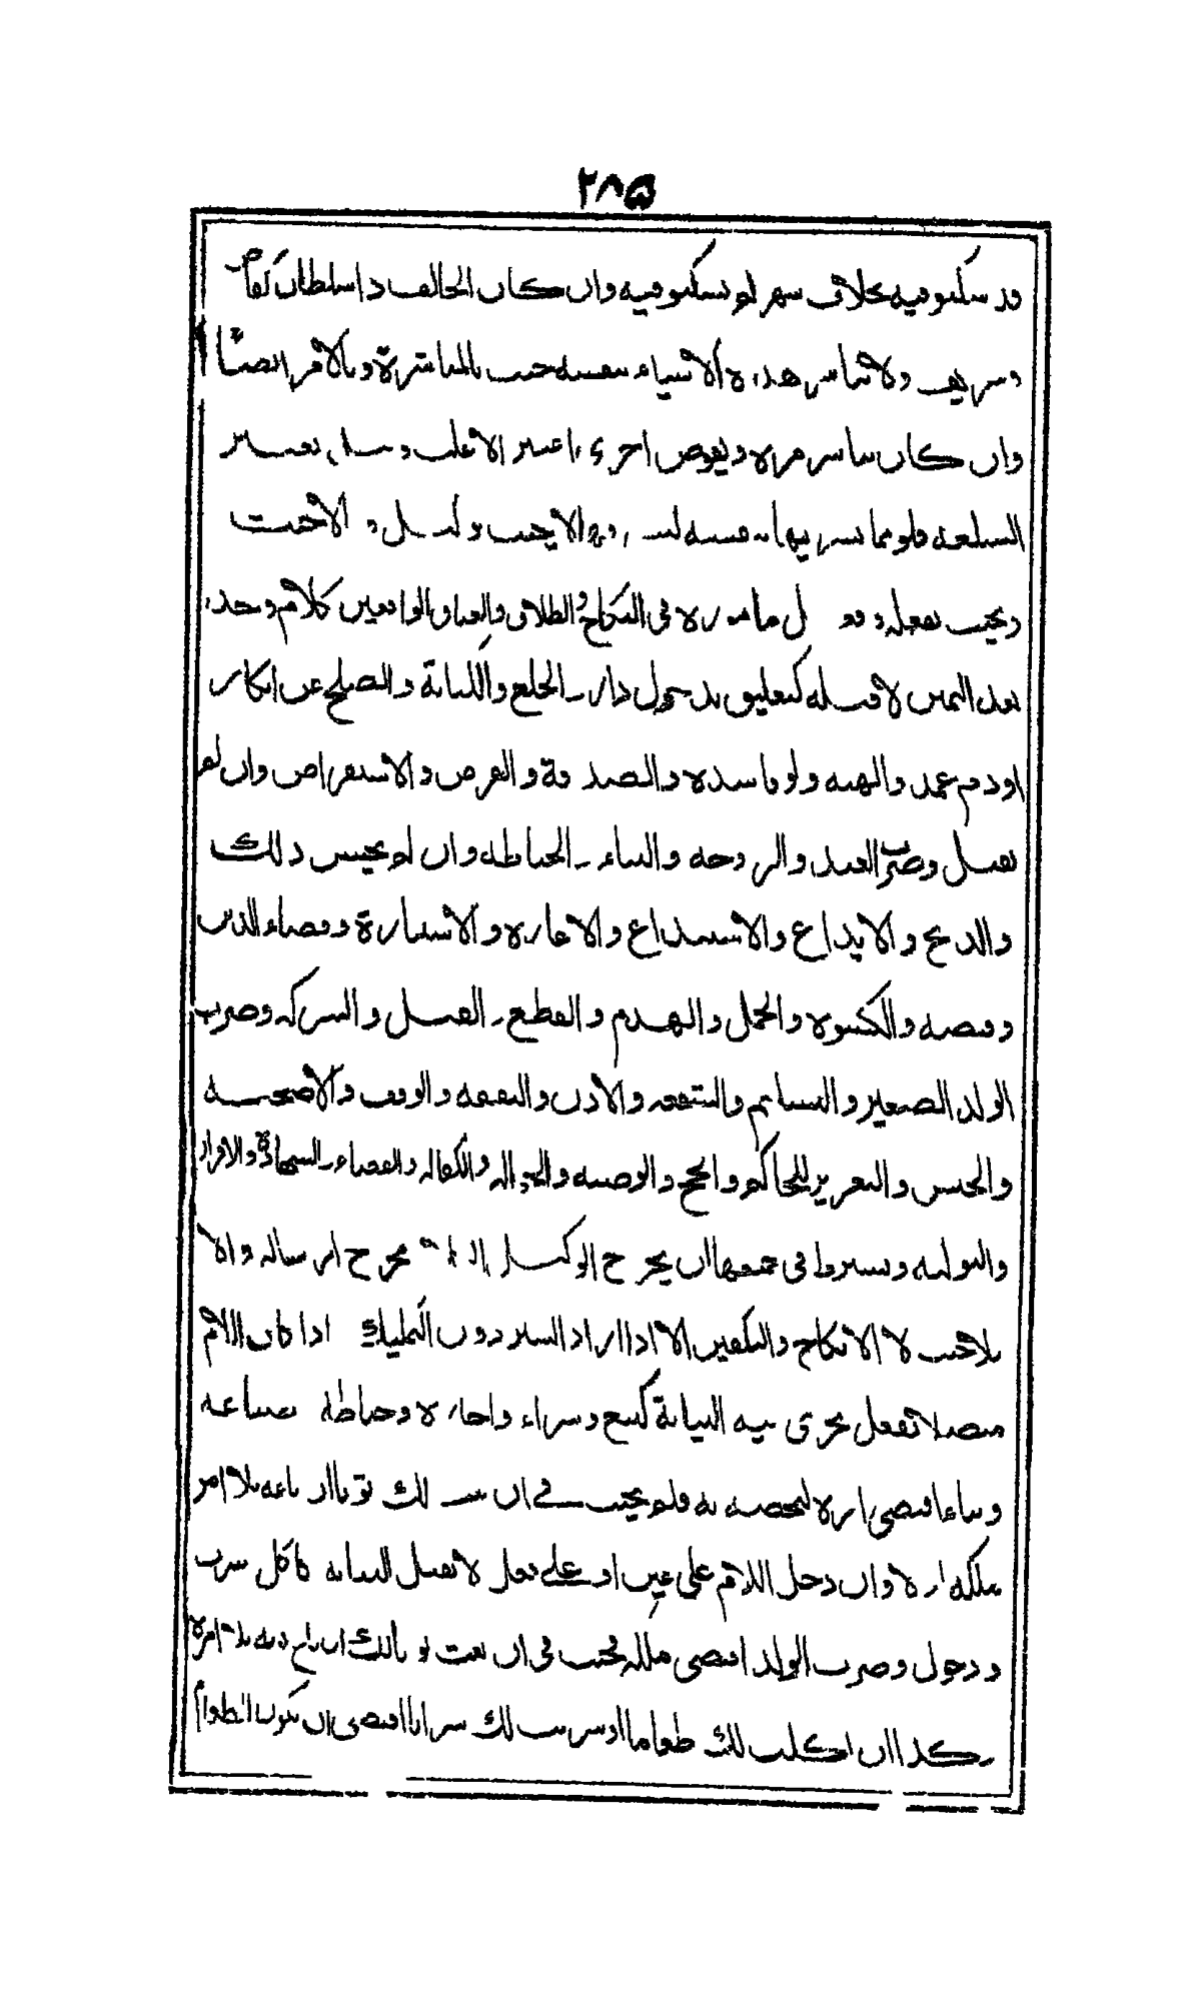 ٢٨٥
وان كان الحالف ذا سلطان كقاض
وشريف لا يباشر هذه الاشياء بنفسه حنث بالمباشرة وبالامر ايضا
وان كان يباشر مرة ويفوض اخرى اعتبر الاغلب وقيل تعتبر
السلعة فلو مما يشتريها بنفسه الا يحنث
ويحنث بفعله ماموره في النكاح والطلاق والعتاق الواقعين بكلام وجد
بعد اليمين لا قبله كتعليق بدخول دار والخلع والكتابة والصلح عن انكار
او دم عمد والهبة ولو فاسدة والصدقة والقرض والاستقراض وان لم
يقبل وضرب العبد والزوجة والبناء والخياطة وان لم يحسن ذلك
والذبح والايداع والاستيداع والاعارة والاستعارة وقضاء الدين
وقبضه والكسوة والحمل والهدم والقطع والقتل والشركة وضرب
الولد الصغير والتسليم والشفعة والاذن والنفقة والوقف والاضحية
والحبس والتعزير للحاكم والحج والوصية والحوالة والكفالة والقضاء والشهادة والاقرار
والتولية ويشترط في جميعها ان يخرج الوكيل مخرج الرسالة والا
فلا حنث لا الانكاح والتكفين الا اذا اراد الستر دون التمليك اذا كان اللام
متصلا بفعل يجرى فيه النيابة كبيع وشراء واجارة وخياطة وصياغة
وبناء اقتضى امره لتخصه به فلم يحنث في ان بعت لك ثوبا ان باعه بلا امر
ملكه اولا وان دخل اللام على عين او على فعل لا تقبل النيابة كاكل شرب
ودخول وضرب الولد اقتضى ملكه فحنث في ان بعت ثوبا لك ان باع ثوبه بلا امره
وكذا ان اكلت لك طعاما او شربت لك شرابا اقتضى ان يكون الطعام